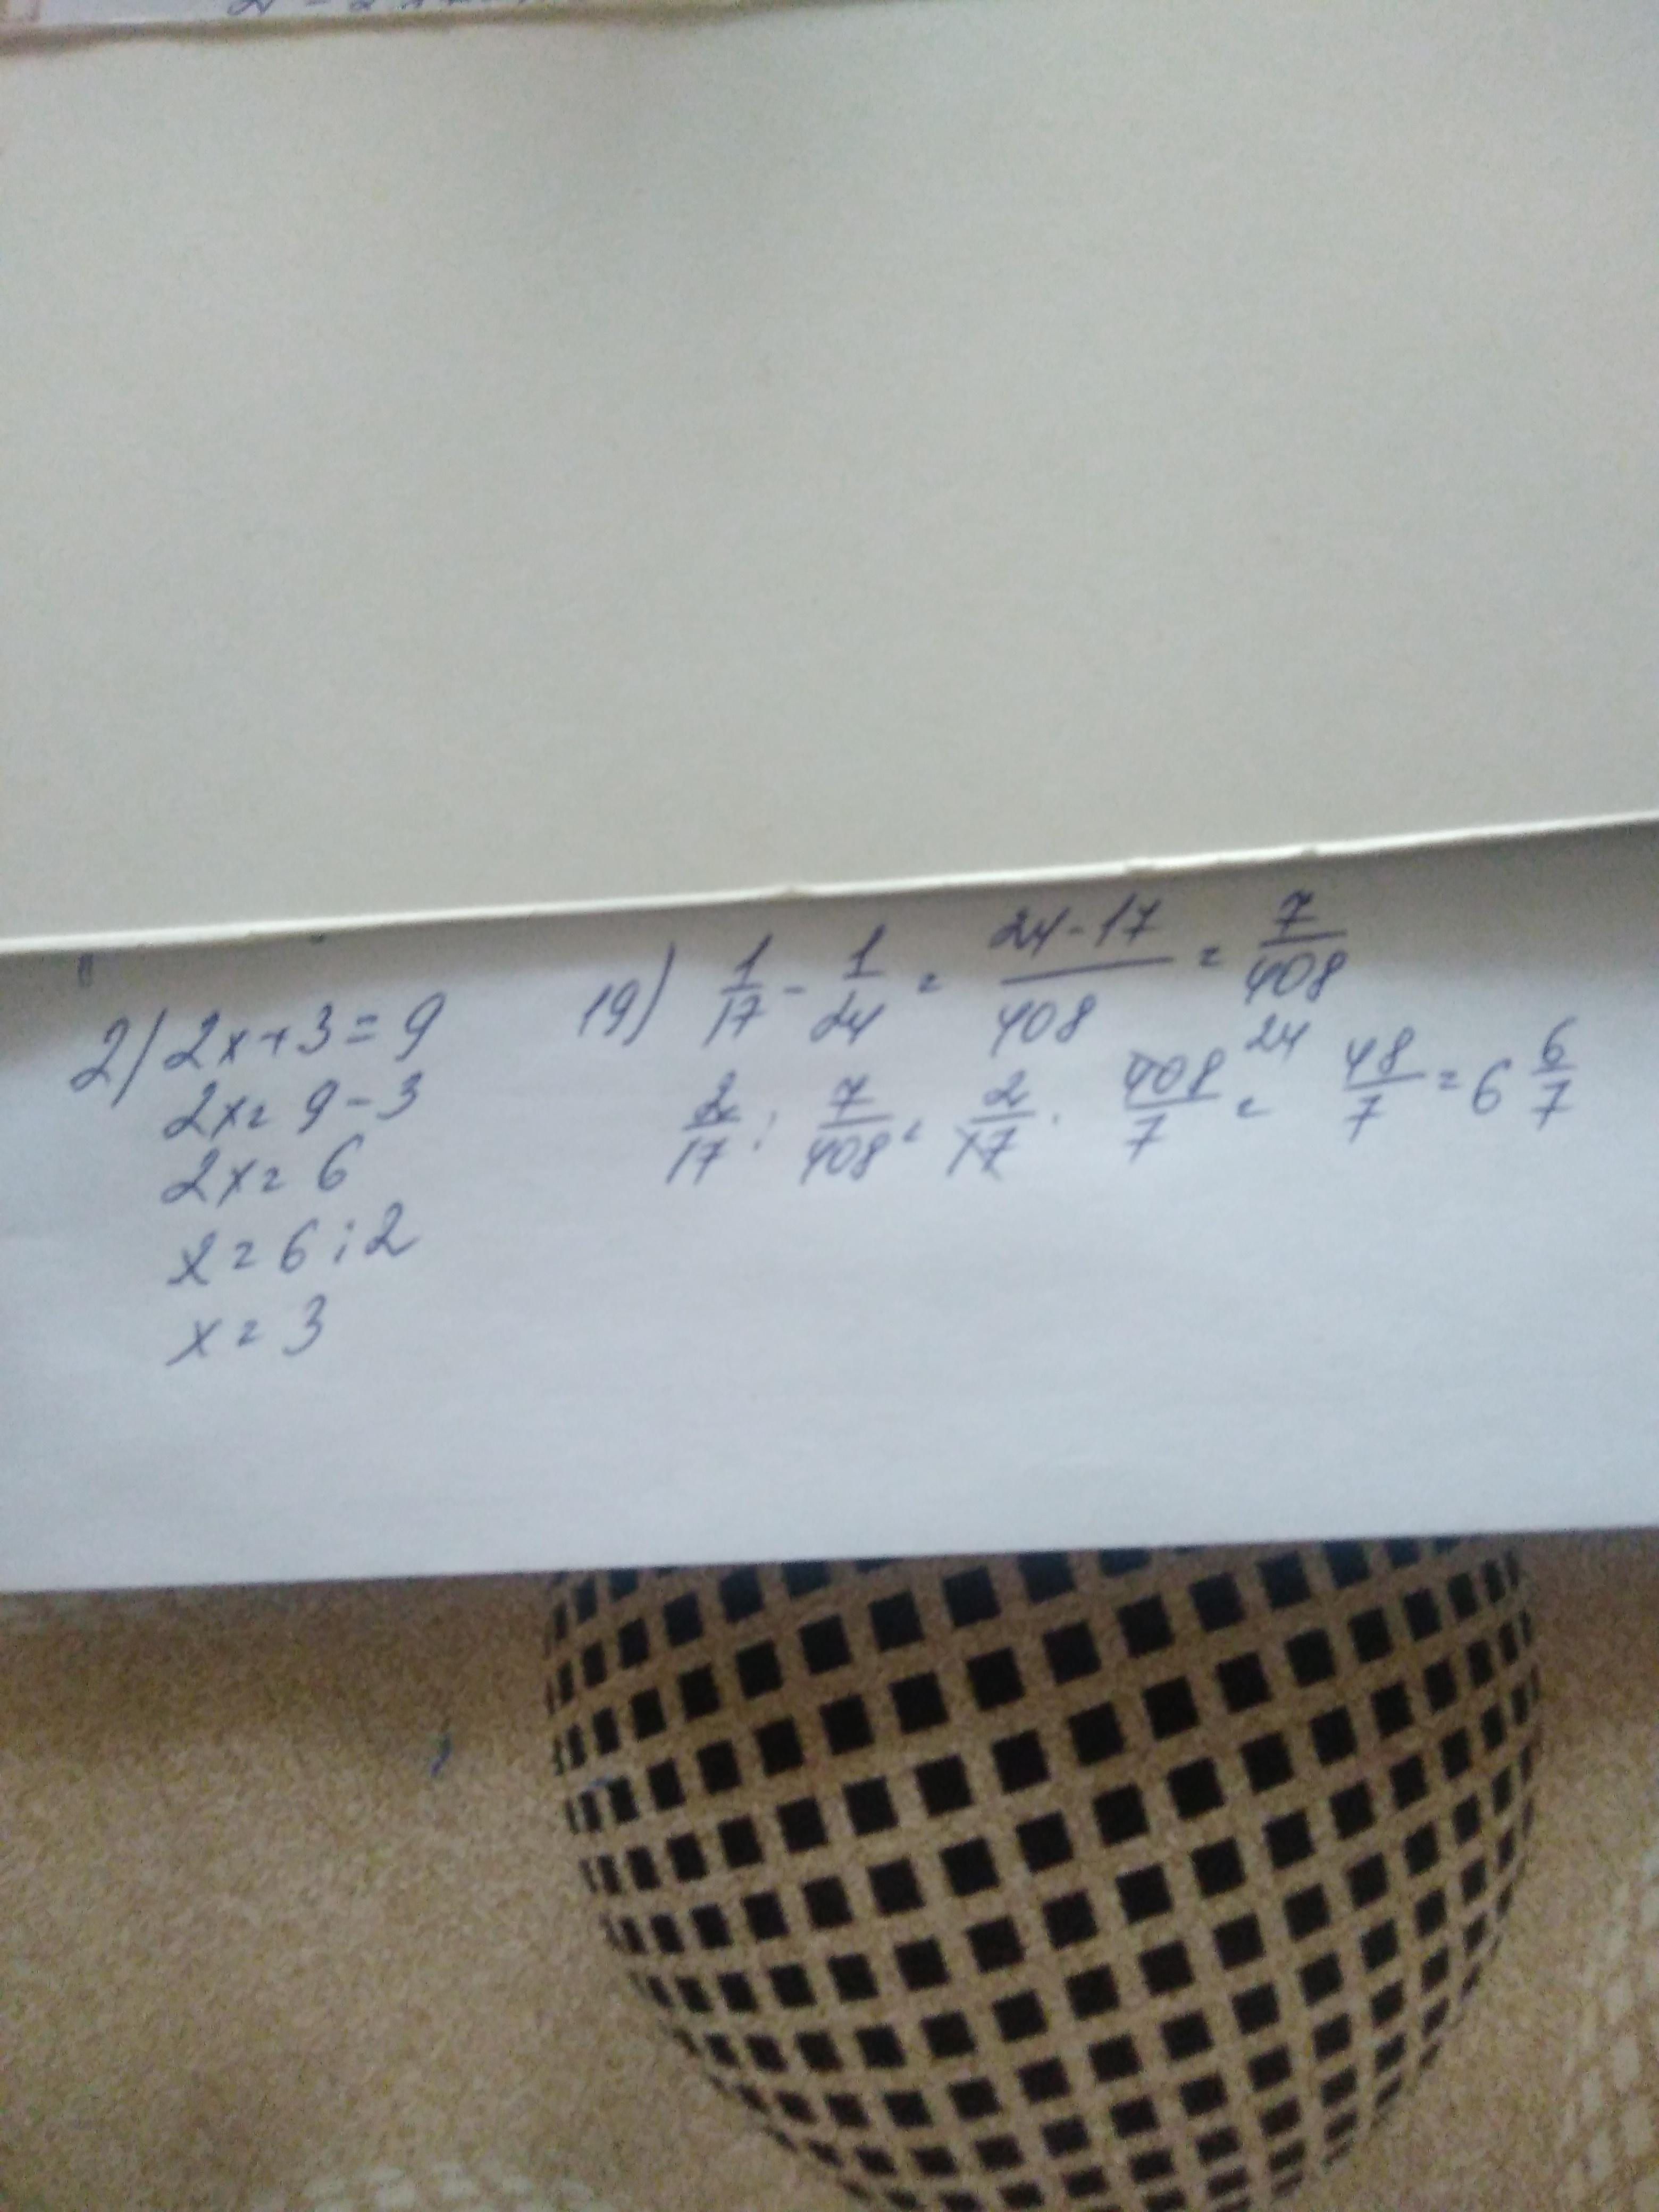 2) 2x+3=9
2x=9-3
2x=6
x=6:2
x=3
19) 1/17 - 1/24 = 24-17/408 = 7/408
2/17 : 7/408 = 2/17 · 408/7 24 = 48/7 = 6 6/7